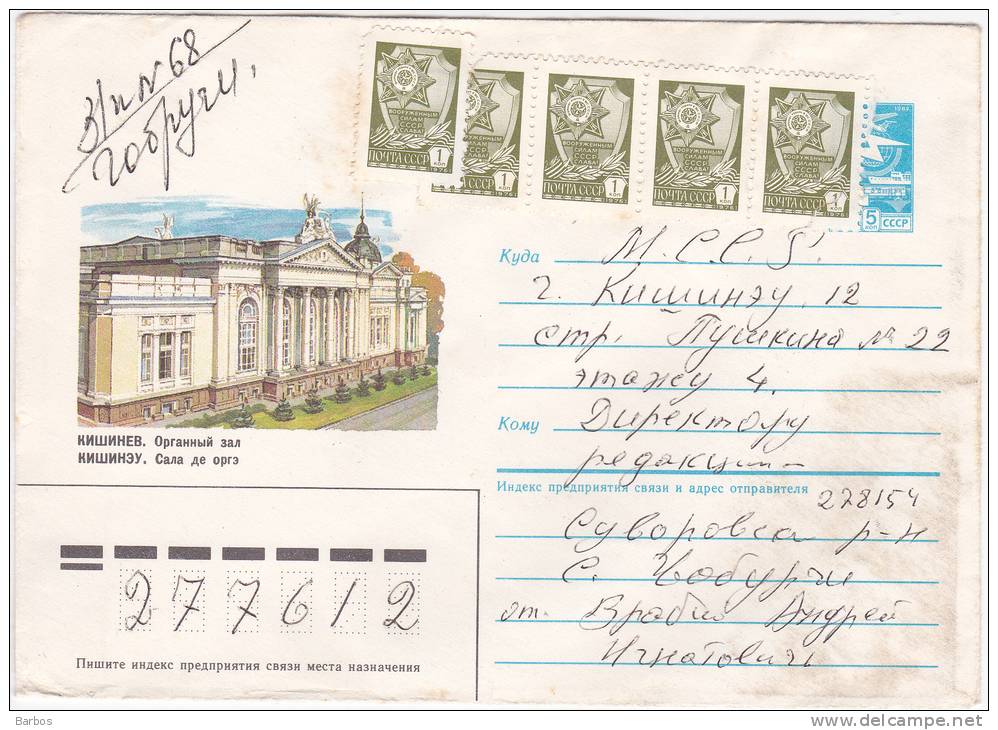 З/п N 68
Чобручи.
ВООРУЖЕННЫМ
СИЛАМ
СССР
СЛАВА!
ПОЧТА СССР 1 КОП
1976
СССР 1 КОП
1976
ВООРУЖЕННЫМ
СИЛАМ
СССР
СЛАВА!
ПОЧТА СССР 1 КОП
1976
ВООРУЖЕННЫМ
СИЛАМ
СССР
СЛАВА!
ПОЧТА СССР 1 КОП
1976
ВООРУЖЕННЫМ
СИЛАМ
СССР
СЛАВА!
ПОЧТА СССР 1 КОП
1976
5 КОП СССР
Куда М.С.С.Р.
г. Кишинэу 12
стр. Пушкина № 22
этажу 4.
Кому Директору
редакции
КИШИНЕВ. Органный зал
КИШИНЭУ. Сала де оргэ
Индекс предприятия связи и адрес отправителя
278154
Суворовски р-н
с. Чобурчи
от. Врабий Андрей
Игнатович
277612
Пишите индекс предприятия связи места назначения
Barbos
www.delcampe.net